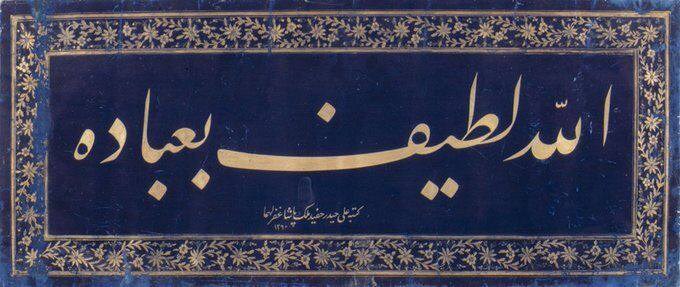 الله لطيف بعباده
كتبه علي حيدر حفيد ملك پاشا غفر لهما
١٢٩٠